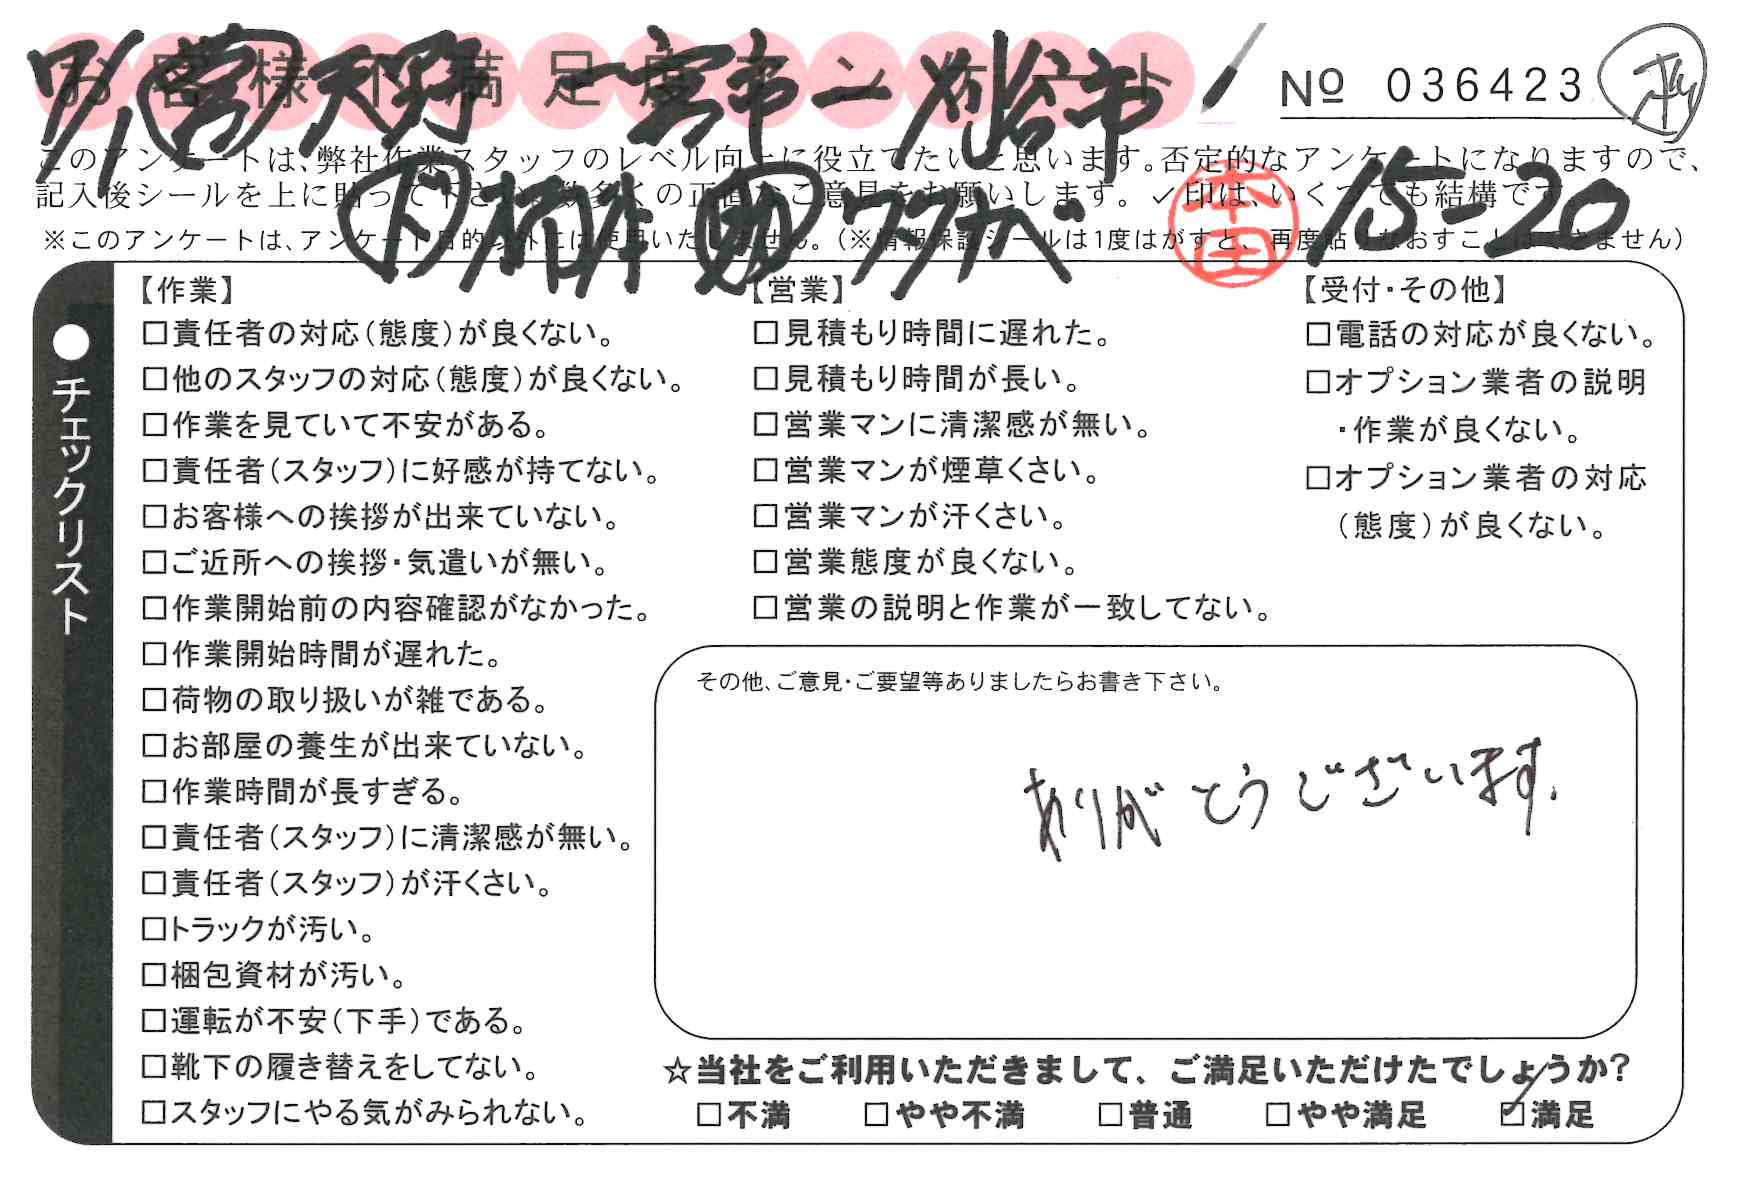 お客様不満足度アンケート
№ 036423
天野 一宮市 ー 刈谷市
このアンケートは、弊社作業スタッフのレベル向上に役立てたいと思います。否定的なアンケートになりますので、
記入後シールを上に貼って下さい。数多くの正直なご意見をお願いします。✓印は、いくつでも結構です。
※このアンケートは、アンケート目的以外には使用いたしません。（※情報保護シールは1度はがすと、再度貼りなおすことはできません）
ワタナベ
本田
15-20
●チェックリスト
【作業】
□責任者の対応（態度）が良くない。
□他のスタッフの対応（態度）が良くない。
□作業を見ていて不安がある。
□責任者（スタッフ）に好感が持てない。
□お客様への挨拶が出来ていない。
□ご近所への挨拶・気遣いが無い。
□作業開始前の内容確認がなかった。
□作業開始時間が遅れた。
□荷物の取り扱いが雑である。
□お部屋の養生が出来ていない。
□作業時間が長すぎる。
□責任者（スタッフ）に清潔感が無い。
□責任者（スタッフ）が汗くさい。
□トラックが汚い。
□梱包資材が汚い。
□運転が不安（下手）である。
□靴下の履き替えをしてない。
□スタッフにやる気がみられない。
【営業】
□見積もり時間に遅れた。
□見積もり時間が長い。
□営業マンに清潔感が無い。
□営業マンが煙草くさい。
□営業マンが汗くさい。
□営業態度が良くない。
□営業の説明と作業が一致してない。
【受付・その他】
□電話の対応が良くない。
□オプション業者の説明
・作業が良くない。
□オプション業者の対応
（態度）が良くない。
その他、ご意見・ご要望等ありましたらお書き下さい。
ありがとうございます。
☆当社をご利用いただきまして、ご満足いただけたでしょうか？
□不満 □やや不満 □普通 □やや満足 ☑満足